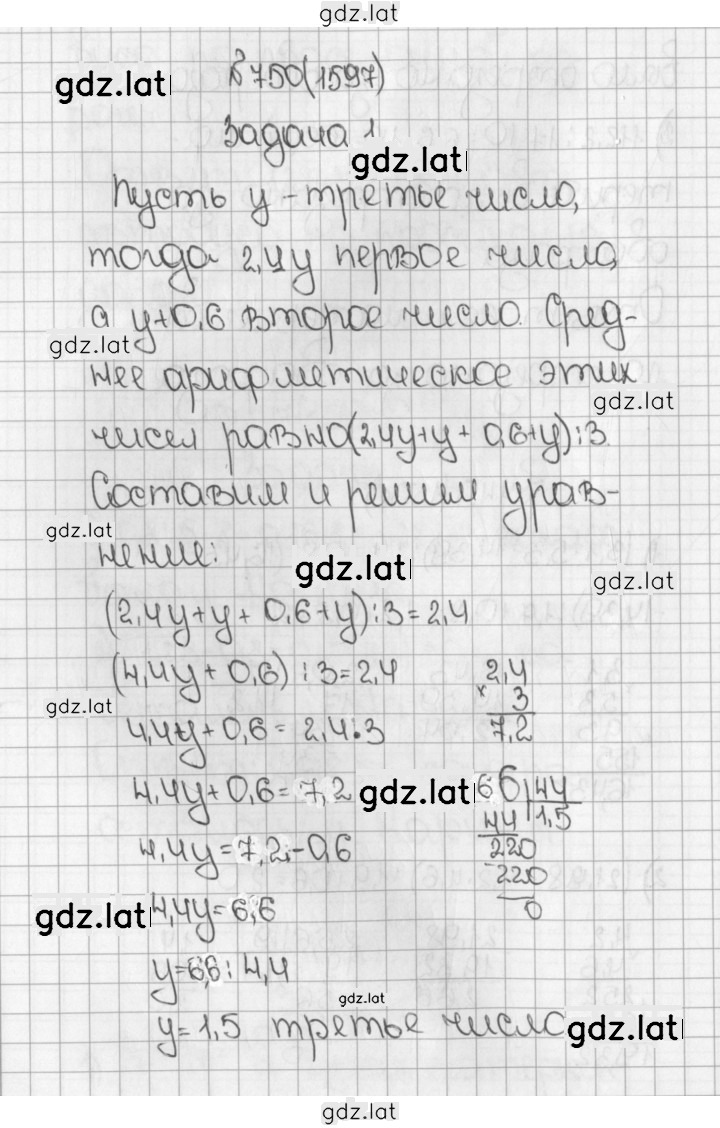 gdz.lat
№750(1597)
gdz.lat
Задача 1
gdz.lat
Пусть y - третье число,
тогда 2,4y первое число,
а y+0,6 второе число. Сред-
gdz.lat
нее арифметическое этих
gdz.lat
чисел равно (2,4y+y+0,6+y):3
Составим и решим урав-
gdz.lat
нение:
gdz.lat
gdz.lat
(2,4y+y+0,6+y):3=2,4
(4,4y+0,6):3=2,4
2,4
× 3
7,2
gdz.lat
4,4y+0,6=2,4·3
4,4y+0,6=7,2
gdz.lat
66 44
44 1,5
220
220
0
4,4y=7,2-0,6
gdz.lat
4,4y=6,6
y=6,6:4,4
gdz.lat
y=1,5 третье число
gdz.lat
gdz.lat